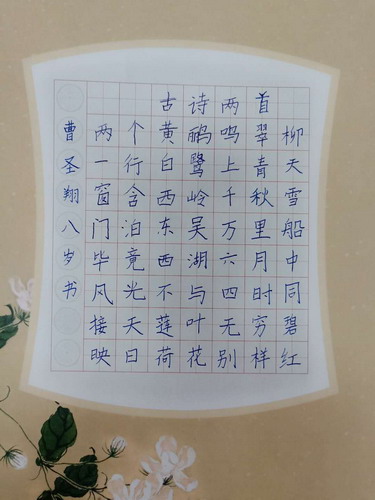 古诗两首
两个黄鹂鸣翠柳
一行白鹭上青天
窗含西岭千秋雪
门泊东吴万里船
毕竟西湖六月中
风光不与四时同
接天莲叶无穷碧
映日荷花别样红
曹圣翔八岁书